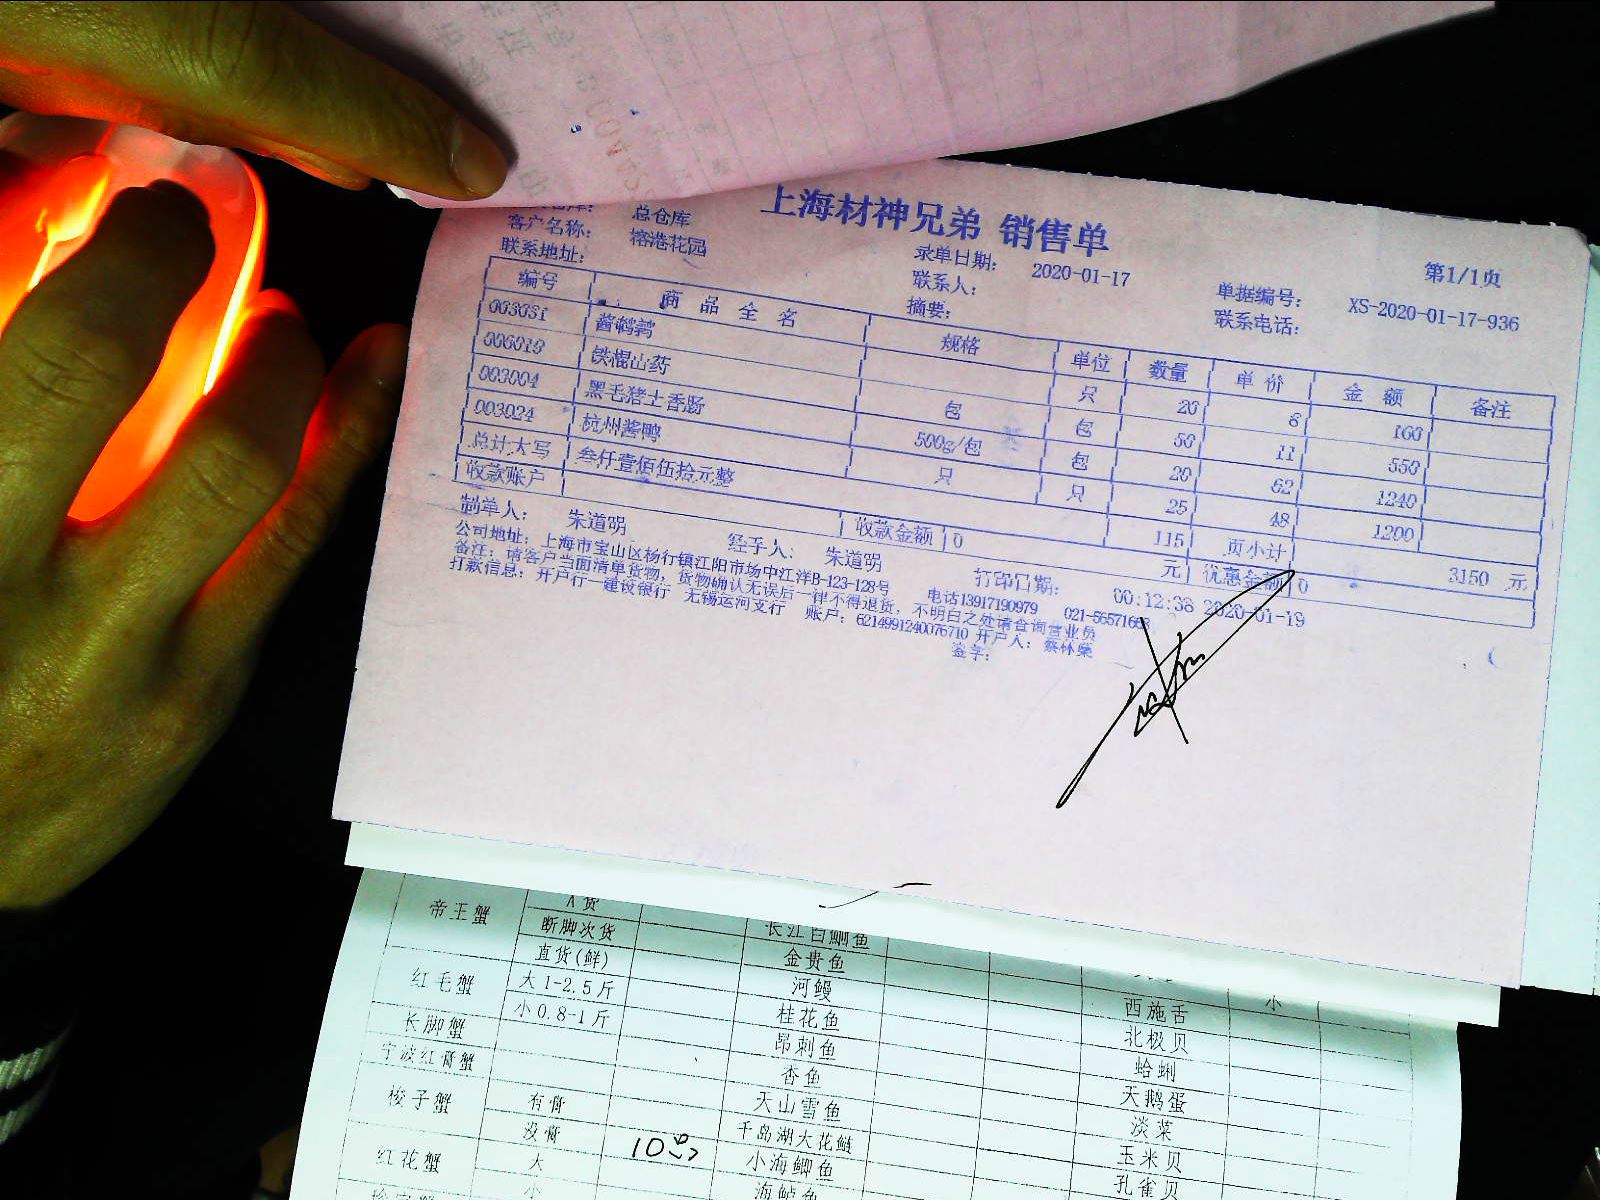 上海材神兄弟 销售单
总仓库
客户名称： 榕港花园 录单日期： 2020-01-17 第1/1页
联系地址： 联系人： 单据编号： XS-2020-01-17-936
摘要： 联系电话：
编号 商品全名 规格 单位 数量 单价 金额 备注
003031 酱鹌鹑 只 20 8 160
006019 铁棍山药 包 包 50 11 550
003004 黑毛猪土香肠 500g/包 包 20 62 1240
003024 杭州酱鸭 只 只 25 48 1200
总计大写 叁仟壹佰伍拾元整 115 页小计 3150 元
收款账户 收款金额 0 元 优惠金额 0
制单人： 朱道明 经手人： 朱道明 打印日期： 00:12:38 2020-01-19
公司地址：上海市宝山区杨行镇江阳市场中江洋B-123-128号 电话13917190979
备注：请客户当面清单货物，货物确认无误后一律不得退货，不明白之处请查询营业员
打款信息：开户行一建设银行 无锡运河支行 账户：6214991240076710 开户人：
签字：
帝王蟹 A货
断脚次货 长江白鮰鱼
直货(鲜) 金贵鱼
红毛蟹 大1-2.5斤 河鳗 西施舌 小
小0.8-1斤 桂花鱼 北极贝
长脚蟹 昂刺鱼 蛤蜊
宁波红膏蟹 杏鱼 天鹅蛋
梭子蟹 有膏 天山雪鱼 淡菜
没膏 千岛湖大花鲢 玉米贝
红花蟹 大 10 小海鲫鱼 孔雀贝
小 海鲈鱼